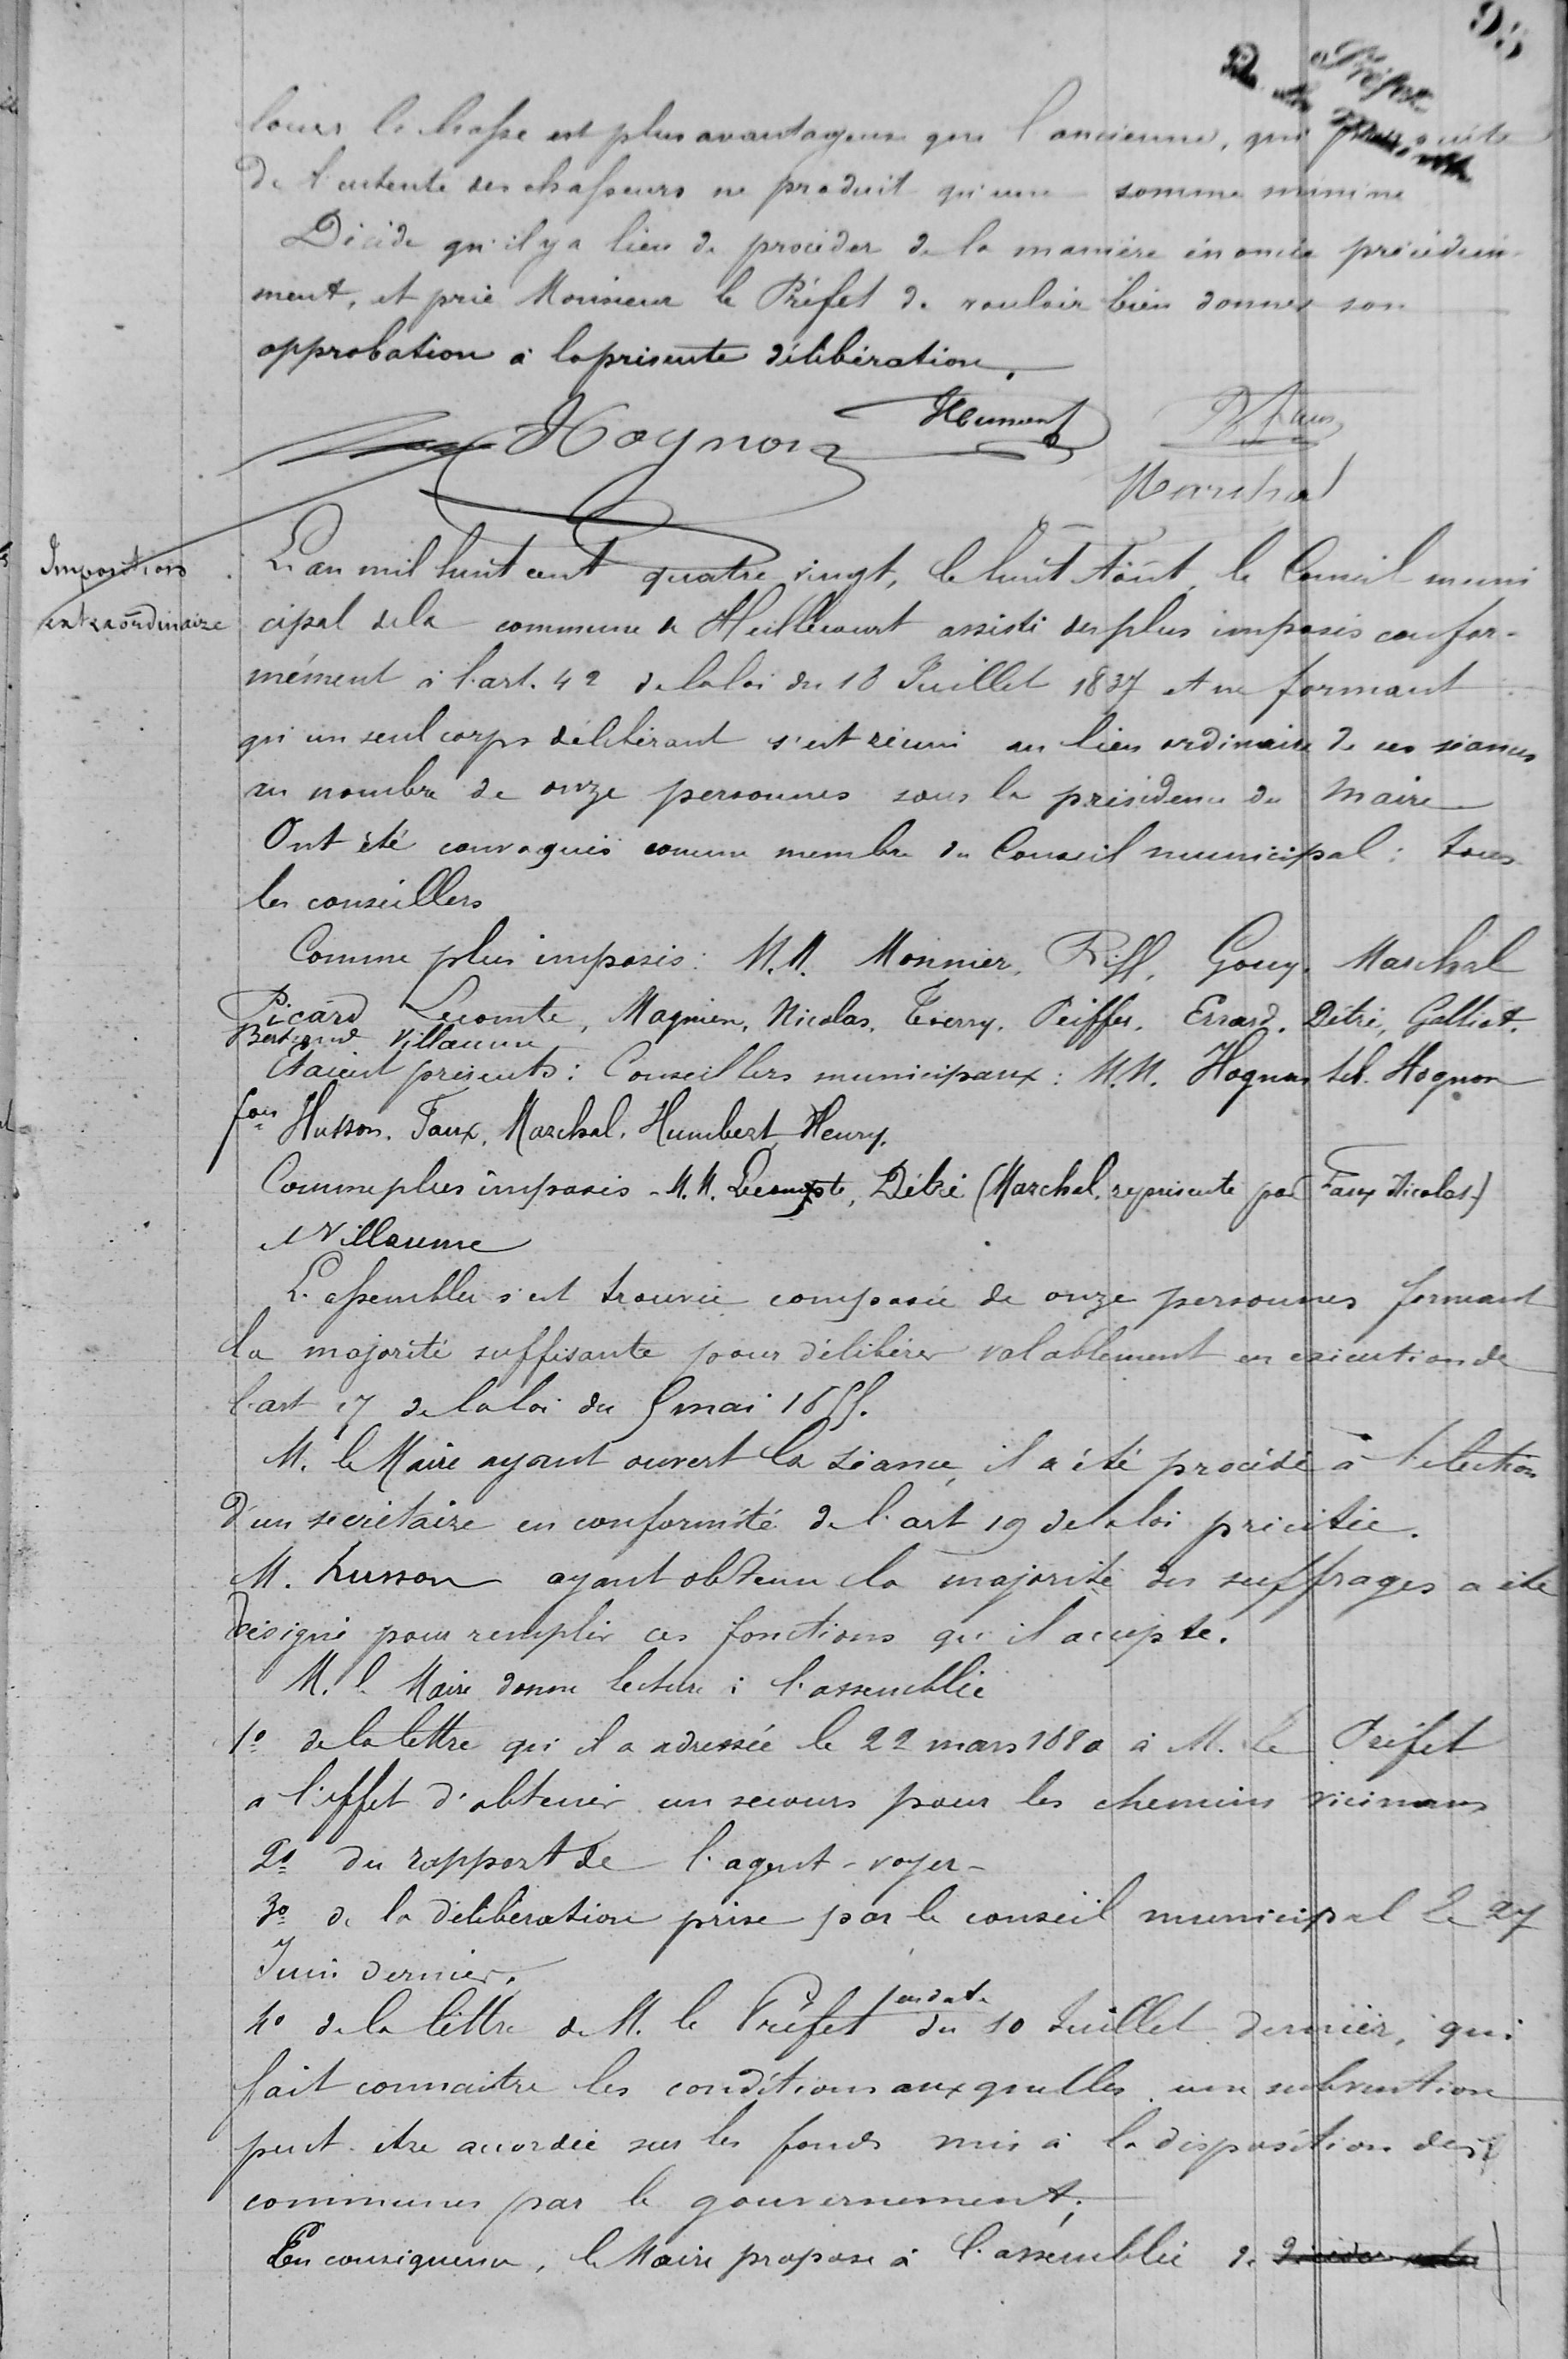 louer la chasse est plus avantageux que l'ancienne, qui par suite
de l'entente des chasseurs ne produit qu'une somme minime
Décide qu'il y a lieu de procéder de la manière énoncée précédem-
ment, et prie Monsieur le Préfet de vouloir bien donner son
approbation à la présente délibération.
Hognon Faux
Marchal
Impositions
extraordinaire
L'an mil huit cent quatre vingt, le huit Août le Conseil muni
cipal de la commune de Heillecourt assisté des plus imposés confor-
mément à l'art. 42 de la loi du 18 Juillet 1837 et ne formant
qu'un seul corps délibérant s'est réuni au lieu ordinaire de ses séances
au nombre de onze personnes sous la présidence du Maire
Ont été convoqués comme membre du Conseil municipal : tous
les conseillers
Comme plus imposés : M.M. Monnier, Riff, Gouy, Marchal
Picard Lecomte, Magnien, Nicolas, Thierry, Peiffer, Errard, Détré, Galliot,
Bertrand Villaume
Etaient présents : Conseillers municipaux : M.M. Hognon Seb. Hognon
fois Husson, Faux, Marchal, Humbert Henry.
Comme plus imposés - M.M. Lecomte, Détré (Marchal, représenté par Faux Nicolas)
et Villaume
L'assemblée s'est trouvée composée de onze personnes formant
la majorité suffisante pour délibérer valablement en exécution de
l'art 17 de la loi du 5 mai 1855.
M. le Maire ayant ouvert la séance, il a été procédé à l'élection
d'un secrétaire en conformité de l'art 19 de la loi précitée.
M. husson ayant obtenu la majorité des suffrages a été
désigné pour remplir ces fonctions qu'il accepte.
M. le Maire donne lecture à l'assemblée
1o de la lettre qu'il a adressée le 22 mars 1880 à M. le Préfet
a l'effet d'obtenir un secours pour les chemins vicinaux
2o du rapport de l'agent-voyer -
3o de la délibération prise par le conseil municipal le 27
Juin dernier.
4o de la lettre de M. le Préfet en date du 10 Juillet dernier, qui
fait connaitre les conditions auxquelles une subvention
peut être accordée sur les fonds mis à la disposition des
communes par le gouvernement ;
En conséquence, le Maire propose à l'assemblée de